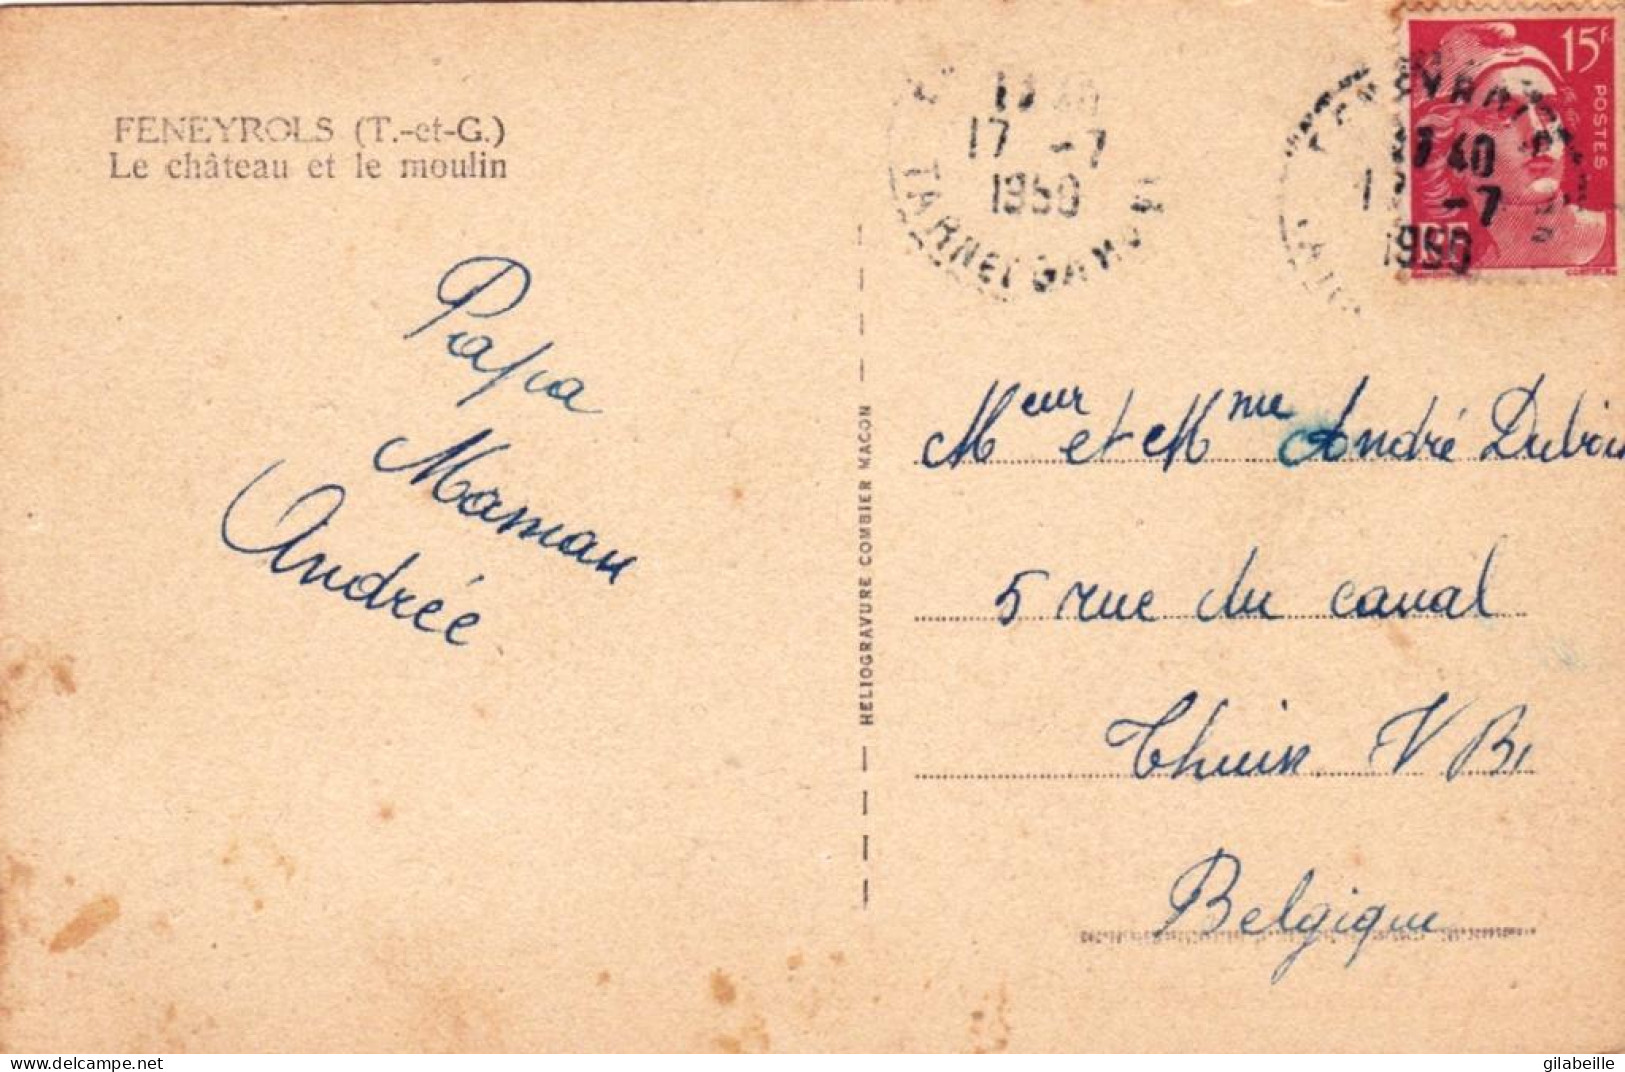 FENEYROLS (T.-et-G.)
Le château et le moulin
Papa
Maman
Andrée
HELIOGRAVURE COMBIER MACON
17 -7
1950
TARN ET GARONNE
15F
POSTES
FENEYROLS
17 40
17 -7
1950
Meur et Mme André Dubois
5 rue du canal
Thuin V B1
Belgique
delcampe.net
gilabeille